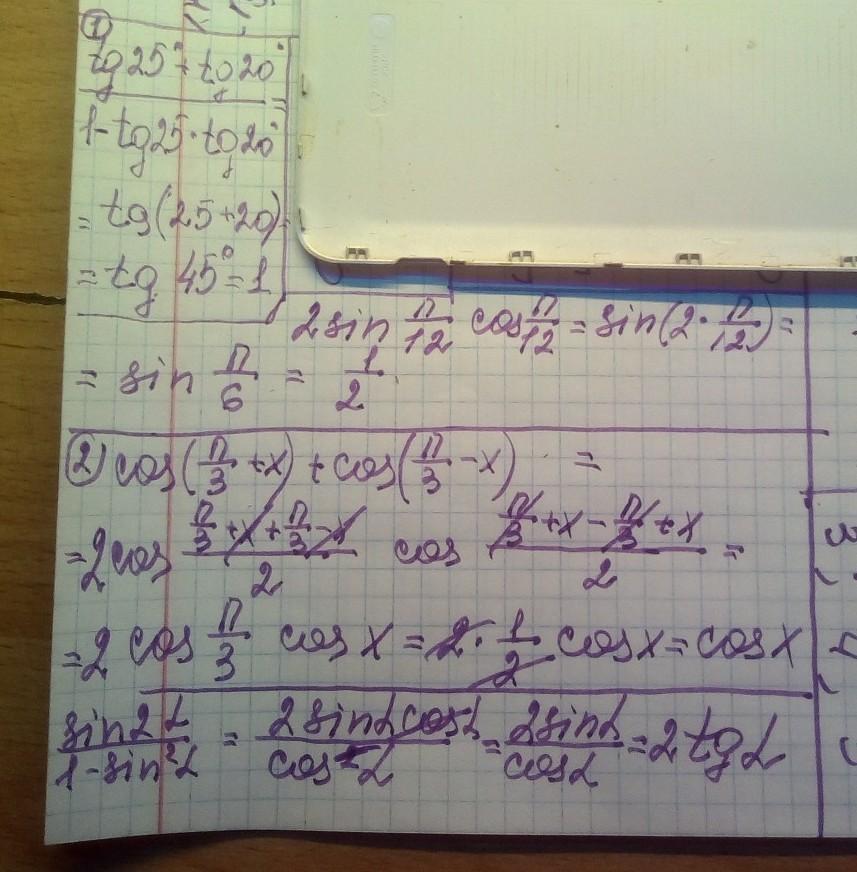 ①
tg25°+tg20° / 1-tg25·tg20° =
= tg(25+20)=
= tg 45°=1
2sin п/12 cos п/12 = sin(2·п/12)=
= sin п/6 = 1/2
② cos(п/3+x)+cos(п/3-x) =
=2cos (п/3+x+п/3-x)/2 cos (п/3+x-п/3+x)/2 =
=2 cos п/3 cos x = 2·1/2 cosx=cosx
sin2α/1-sin²α = 2sinαcosα/cos²α = 2sinα/cosα =2tgα